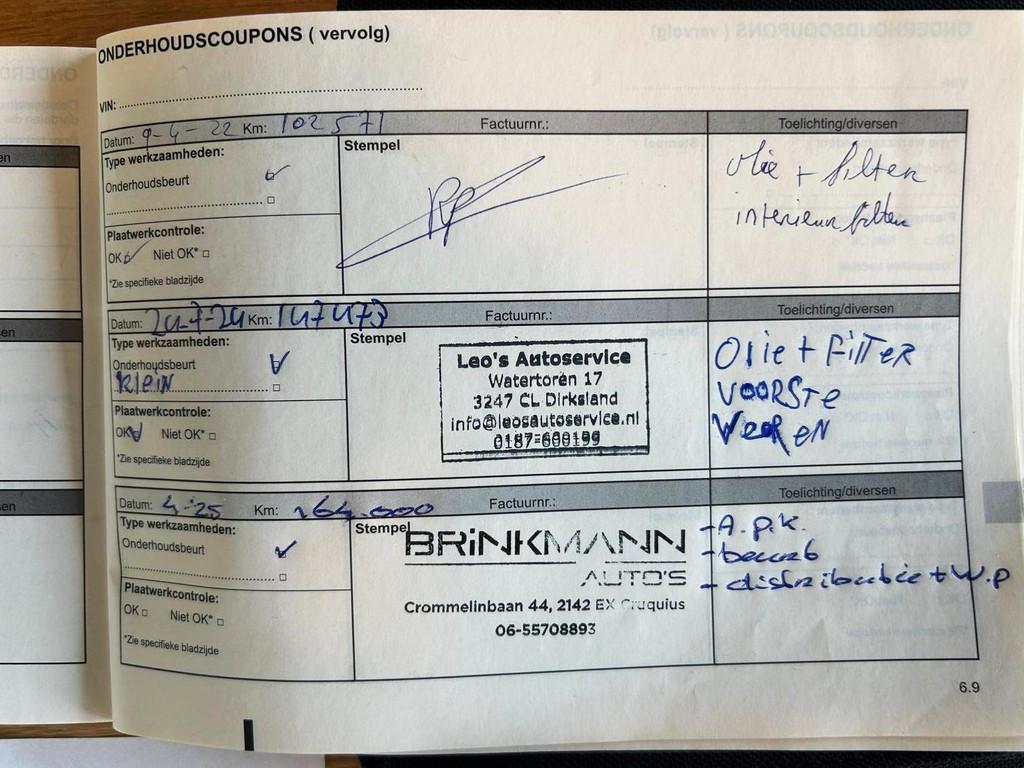 ONDERHOUDSCOUPONS ( vervolg)
VIN:
Datum: 9-4-22 Km: 102571 Factuurnr.: Toelichting/diversen
Type werkzaamheden:
Stempel
Onderhoudsbeurt
olie + filter
interieur filter
Plaatwerkcontrole:
OK Niet OK*
*Zie specifieke bladzijde
Datum: 24-7-24 Km: 147473 Factuurnr.: Toelichting/diversen
Type werkzaamheden:
Stempel
Onderhoudsbeurt
KlEiN
Leo's Autoservice
Watertoren 17
3247 CL Dirksland
info@leosautoservice.nl
Olie + FilTER
VOORSTE
VeeREN
Plaatwerkcontrole:
OK Niet OK*
*Zie specifieke bladzijde
Datum: 4-25 Km: 164.000 Factuurnr.: Toelichting/diversen
Type werkzaamheden:
Stempel
Onderhoudsbeurt
BRiNKMANN
AUTO'S
Crommelinbaan 44, 2142 EX Cruquius
06-55708893
- A.p.k.
- beurt
- distributie + W.p
Plaatwerkcontrole:
OK Niet OK*
*Zie specifieke bladzijde
6.9